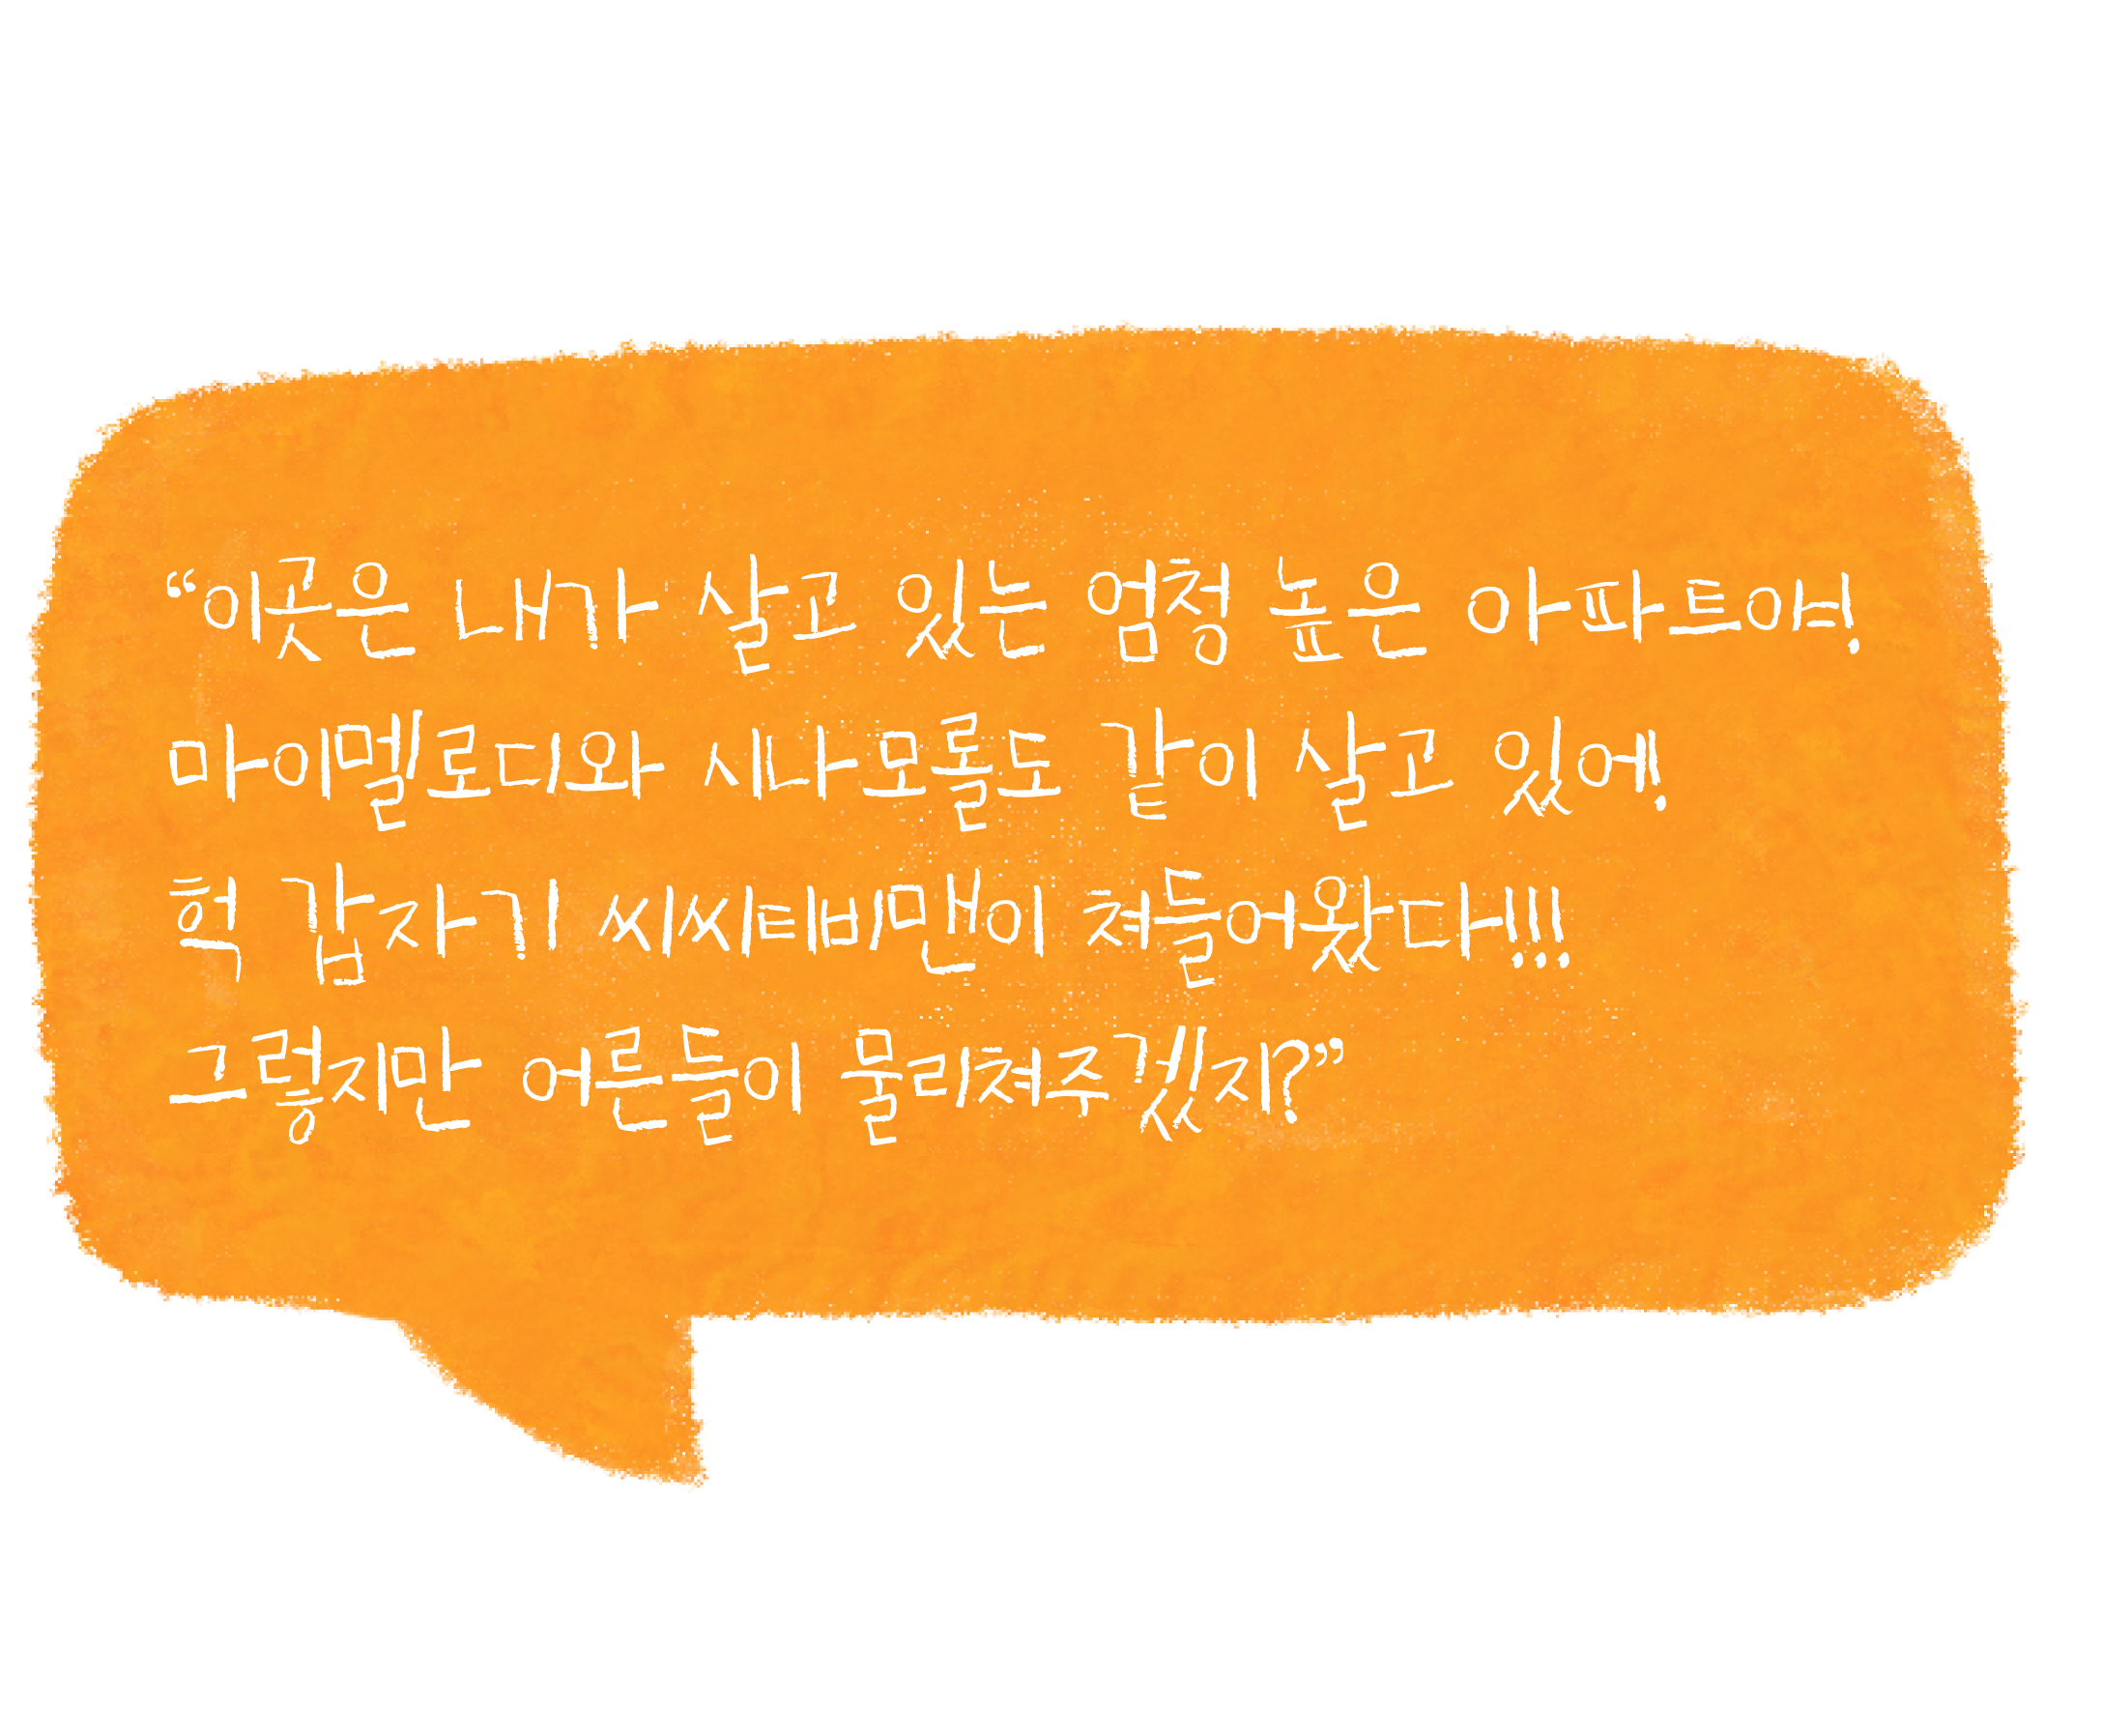 “이곳은 내가 살고 있는 엄청 높은 아파트야!
마이멜로디와 시나모롤도 같이 살고 있어!
헉 갑자기 씨씨티비맨이 쳐들어왔다!!!
그렇지만 어른들이 물리쳐주겠지?”